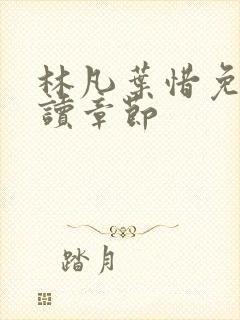 林凡葉惜免
讀章節
踏月